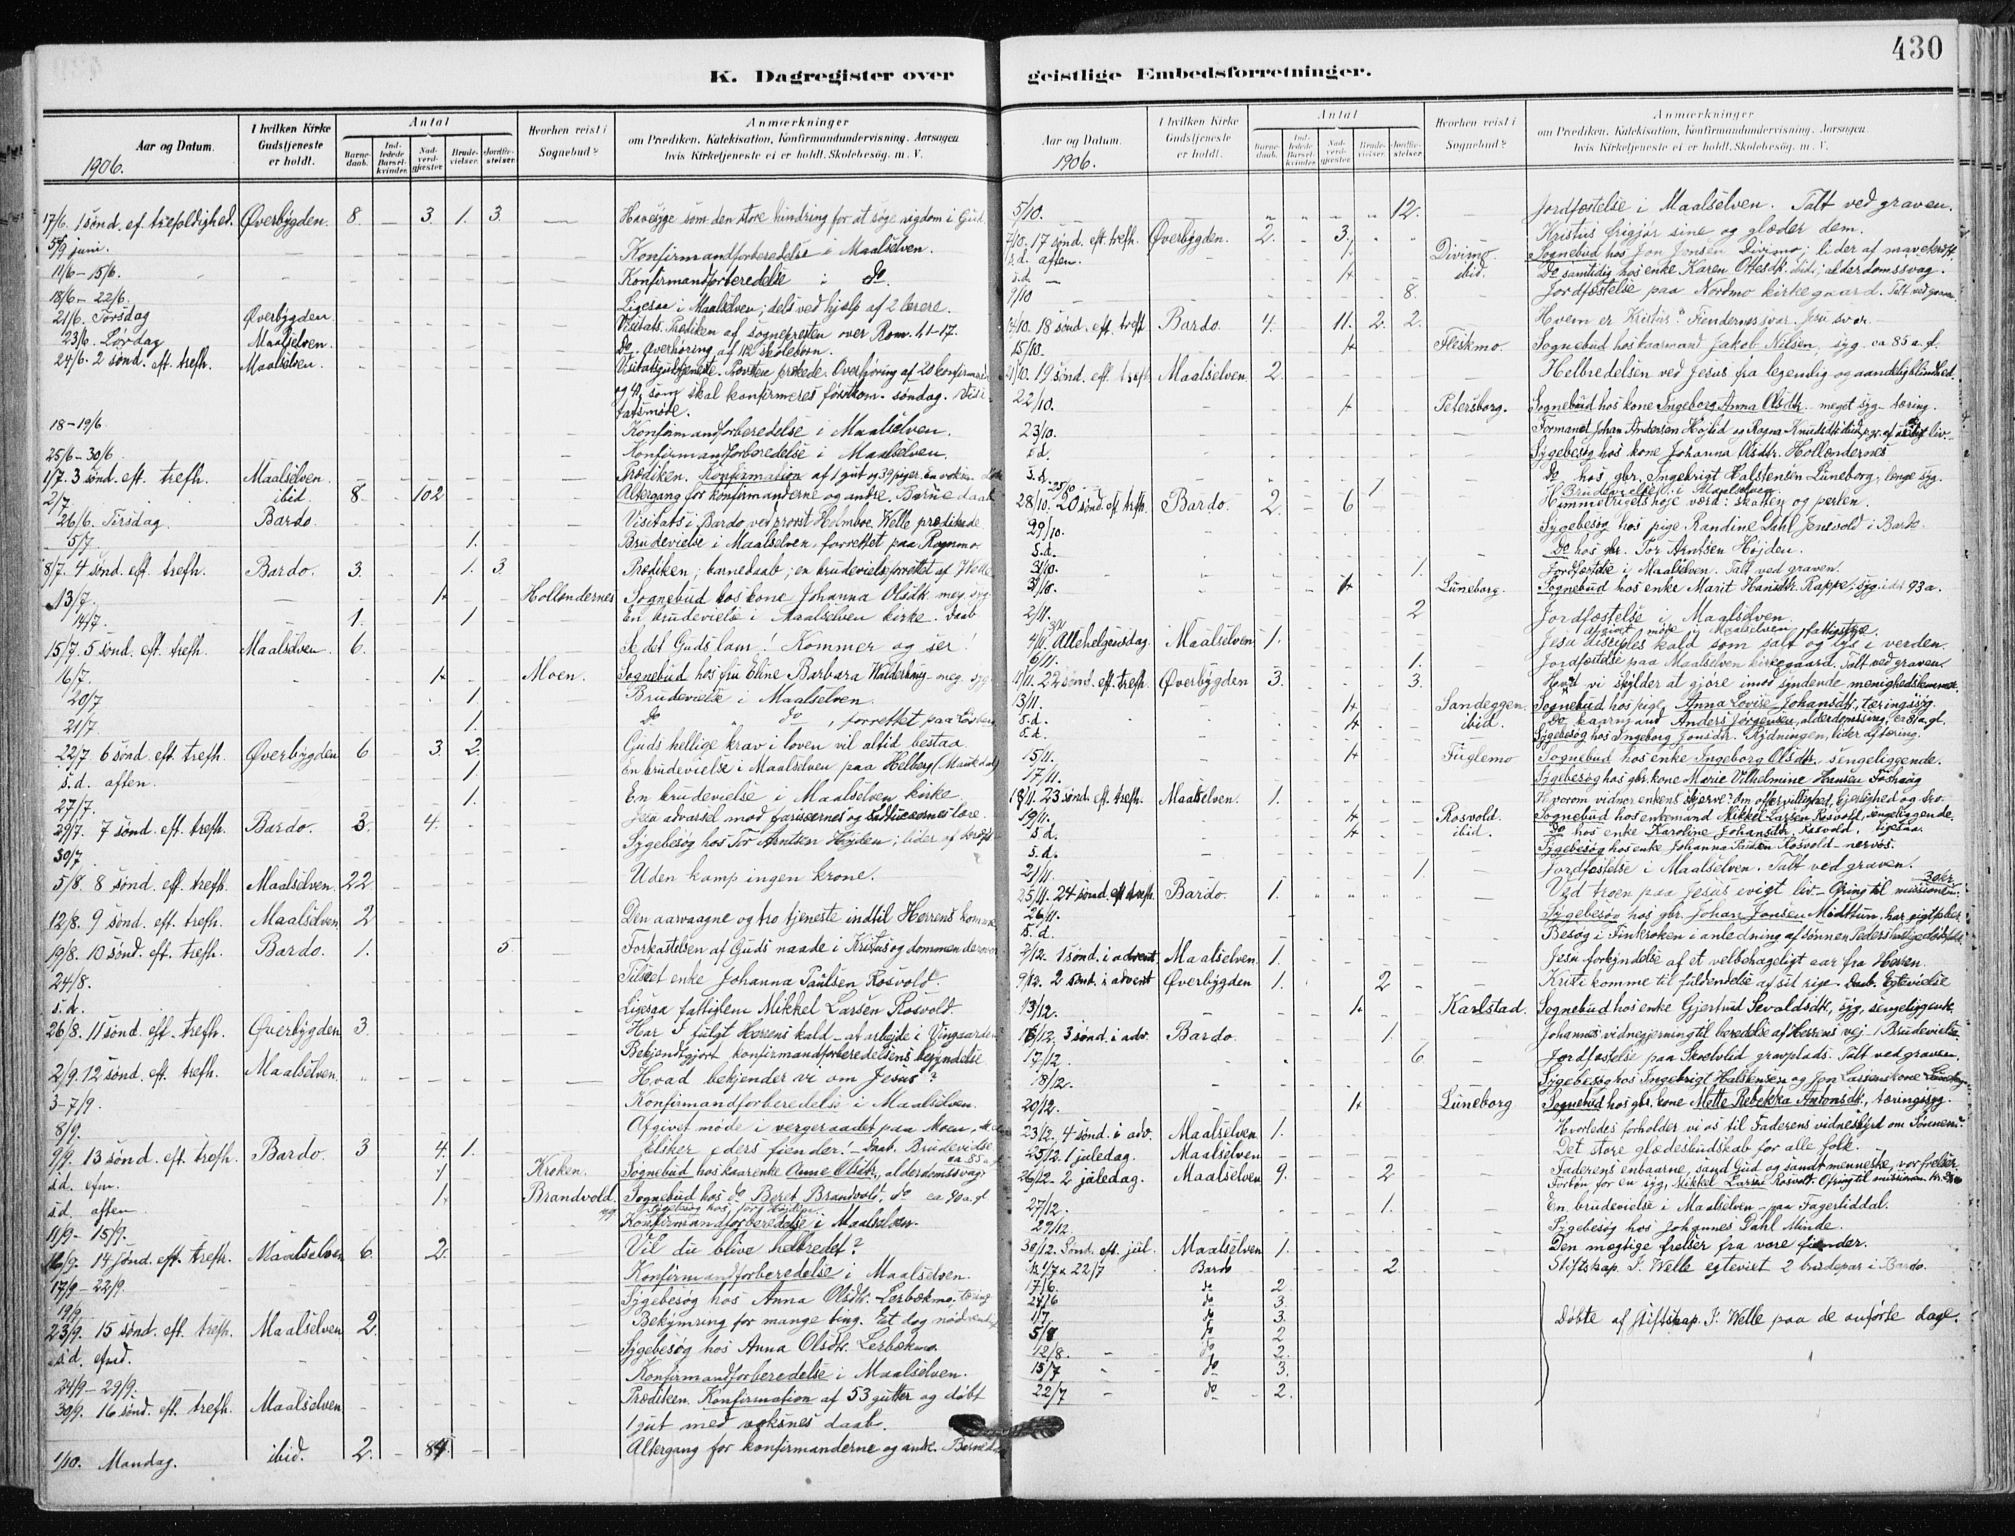 430
K. Dagregister over geistlige Embedsforretninger.
Aar og Datum.
I hvilken Kirke Gudstjeneste er holdt.
Antal
Barnedaab.
Indledede Barselkvinder.
Nadverdgjester.
Brudevielser.
Jordfæstelser.
Hvorhen reist i Sognebud?
Anmærkninger
om Prædiken, Katekisation, Konfirmandundervisning, Aarsagen
hvis Kirketjeneste ei er holdt, Skolebesøg, m. V.
1906.
17/6. 1 sønd. ef. trefoldighed. Øverbygden. 8. — 3. 1. 3. — Havesyge som den store hindring for at søge rigdom i Gud.
5/9 juni. Konfirmandforberedelse i Maalselven.
11/6 – 15/6. Konfirmandforberedelse i do.
18/6 – 22/6. Ligesaa i Maalselven; dels ved hjælp af 2 lærere.
21/6. Torsdag Øverbygden Visitats. Prædiken af sognepresten over Rom. 1,1-17.
23/6. Lørdag Maalselven. Do. Overhøring af 112 skolebørn.
24/6. 2 sønd. eft. trefh. Maalselven. Visitatsgudstjeneste. Provsten prækede. Overhøring af 20 konfirmer.
og 41, som skal konfirmeres førstkom. søndag. Visi-
tatsmøde.
18 – 19/6 Konfirmandforberedelse i Maalselven.
25/6 – 30/6 Konfirmandforberedelse i Maalselven.
1/7. 3 sønd. eft. trefh. Maalselven. Prædiken. Konfirmation af 1 gut og 39 piger.
2/7 ibid. 8. — 102 Altergang for konfirmanderne og andre. Barnedaab
26/6. Tirsdag Bardo. Visitats i Bardo ved provst Helmboe. Welle prædikede.
5/7. 1. Brudevielse i Maalselven, forrettet paa Rognmo
8/7. 4 sønd. eft. trefh. Bardo. 3. 1. 3 Prædiken; barnedaab; en brudevielse forrettet af Welle
13/7. 1+ Hollendernes Sognebud hos kone Johanna Olsdtr. meg. syg
14/7. 1. 1 En brudevielse i Maalselven kirke. Daab
15/7. 5 sønd. eft. trefh. Maalselven. 6. Se det Guds lam! Kommer og ser!
16/7. 1+ Moen. Sognebud hos fru Eline Barbara meg. syg
20/7 1. Brudevielse i Maalselven.
21/7. 1. do " do, forrettet paa
22/7 6 sønd. eft. trefh. Øverbygden 6 3. 2. Guds hellige krav i loven vil altid bestaa.
s.d. aften. 1. En brudevielse i Maalselven paa Helberg (Maukdal)
27/7. 1. En brudevielse i Maalselven kirke.
29/7. 7 sønd. eft. trefh. Bardo. 3. 4. Jesu advarsel mod farisæernes og sadducæernes lære.
30/7 Sygebesøg hos Tor Arntsen Højden; lider af
5/8. 8 sønd. eft. trefh. Maalselven. 22. Uden kamp ingen krone.
12/8. 9 sønd. eft. trefh. Maalselven 2 Den aarvaagne og tro tjeneste indtil Herrens komme
19/8. 10 sønd. eft. trefh. Bardo. 1. 5. Forkastelsen af Guds naade i Kristus og dommen derover
24/8. Tilseet enke Johanna Paulsen Rosvold.
s.d. Ligesaa fattiglem Mikkel Larsen Rosvold.
26/8. 11 sønd. eft. trefh. Øverbygden 3. Har I fulgt Herrens kald – at arbejde i Vingaarden
Bekjendtgjort konfirmandforberedelsens begyndelse.
2/9. 12 sønd. eft. trefh. Maalselven. Hvad bekjender vi om Jesus?
3 – 7/9. Konfirmandforberedelse i Maalselven.
8/9. Afgivet møde i vergeraadet paa Moen,
9/9. 13 sønd. eft. trefh. Bardo. 3 4. 1. Elsker eders fiender! – Daab. Brudevielse
s.d. efm. 1+ Kroken. Sognebud hos kaarenke Anne Olsdtr., alderdomssvag, ca 85 a.
s.d. aften 1+ Brandvold. Sognebud hos do Beret Brandvold, do ca 90 a. gl.
Sygebesøg hos Tor Højden.
11/9 – 15/9. Konfirmandforberedelse i Maalselven.
16/9. 14 sønd. eft. trefh. Maalselven 6. 2. Vil du blive helbredet?
17/9 – 22/9. Konfirmandforberedelse i Maalselven.
19/9 Sygebesøg hos Anna Olsdtr. Lerbækmo, tæring
23/9. 15 sønd. eft. trefh. Maalselven 2. Bekymring for mange ting. Et dog nødvendigt
s.d. efmd. Sygebesøg hos Anna Olsdtr. Lerbækmo.
24/9 – 29/9. Konfirmandforberedelse i Maalselven.
30/9. 16 sønd. eft. trefh. Maalselven Prædiken. Konfirmation af 53 gutter og døbt
1 gut med voksnes daab.
1/10. Mandag. ibid. 2. — 84. Altergang for konfirmanderne og andre. Barnedaab
Aar og Datum.
I hvilken Kirke Gudstjeneste er holdt.
Antal
Barnedaab.
Indledede Barselkvinder.
Nadverdgjester.
Brudevielser.
Jordfæstelser.
Hvorhen reist i Sognebud?
Anmærkninger
om Prædiken, Katekisation, Konfirmandundervisning, Aarsagen
hvis Kirketjeneste ei er holdt, Skolebesøg, m. V.
1906.
5/10. 12. Jordfæstelse i Maalselven. Talt ved graven.
7/10. 17 sønd. eft. trefh. Øverbygden. 2. 3. Kristus frigjør sine og glæder dem.
s.d. aften. 1+ Divimo Sognebud hos Jon Jonsen Divimo; lider af mavekræft.
s.d. 1+ ibid. Do samtidig hos enke Karen Ottesdtr. ibid.; alderdomssvag.
9/10 8. Jordfæstelse paa Nordmo kirkegaard. Talt ved graven.
14/10. 18 sønd. eft. trefh. Bardo. 4. 11. 2. 2. Hvem er Kristus? Fiendernes svar. Jesu svar.
15/10. 1+ Fleskmo. Sognebud hos kaarmand Jakob Nilsen, syg, ca 85 a. g.
21/10. 19 sønd. eft. trefh. Maalselven. 2. Helbredelsen ved Jesus fra legemlig og aandelig blindhed.
22/10. 1+ Petersborg. Sognebud hos kone Ingeborg Anna Olsdtr. meget syg – tæring.
23/10. Formanet Johan Andersen Højlid og Ragna Knudsdtr.
s.d. Sygebesøg hos kone Johanna Olsdtr. Hollændernes
s.d. Do hos gbr. Ingebrigt Halstensen Lüneborg, længe syg.
25/10 1 Brudevielse i Maalselven
28/10. 20 sønd. ef. trefh. Bardo. 2. 6. Himmerigets høje værd: skatten og perlen.
29/10. Sygebesøg hos pige Randine Dahl Jensvold i Bardo.
s.d. Do hos gbr. Tor Arntsen Højden.
31/10. 1. Jordfæstelse i Maalselven. Talt ved graven.
31/10. 1+ Lüneborg. Sognebud hos enke Marit Hansdtr. Rappe, syg i det 93 a.
2/11. 2 Jordfæstelse i Maalselven.
3/11 Afgivet møde i Maalselven fattigstyre.
4/11. Allehelgensdag. Maalselven. 1. Jesu disciples kald som salt og lys i verden.
6/11. 1. Jordfæstelse paa Maalselven kirkegaard. Talt ved graven.
11/11. 22 sønd. eft. trefh. Øverbygden 3. 3. Hvad vi skylder at gjøre imod syndende menighedslemmer.
13/11. 1+ Sandeggen. Sognebud hos pige Anna Lovise Johansdtr., tæringssyg.
s.d. 1+ ibid. Do, kaarmand Anders Jørgensen, alderdomssvag, ca 81 a. gl.
s.d. Sygebesøg hos Ingeborg Jonsdtr. Rydningen, lider af tæring.
15/11. 1+ Fuglemo Sognebud hos enke Ingeborg Olsdtr., sengeliggende.
17/11. Sygebesøg hos gbr. kone Marie Vilhelmine Hansen Foshaug
18/11. 23 sønd. eft. trefh. Maalselven. 1. Hvorom vidner enkens skjærv? Om offervillighed, kjærlighed og tro.
19/11. 1+ Rosvold. Sognebud hos enkemand Mikkel Larsen Rosvold, sengeliggende.
s.d. 1+ ibid. Do hos enke Karoline Johansdtr. Rosvold, ligesaa.
s.d. Sygebesøg hos enke Johanna Paulsen Rosvold – nervøs.
21/11. 1 Jordfæstelse i Maalselven. Talt ved graven.
25/11. 24 sønd. eft. trefh. Bardo. 1. Ved troen paa Jesus evigt liv – Ofring til missionen. 30 kr.
26/11. Sygebesøg hos gbr. Johan Jonsen Midttun, har gigtfeber
s.d. Besøg i Finkroken i anledning af sønnen Peders
2/12. 1 sønd. i advent. Maalselven 1. Jesu forkyndelse af et velbehageligt aar fra Herren.
9/12. 2 sønd. i advent Øverbygden 1. 2 Kristi komme til fuldendelse af sit rige. Daab. Egtevielse
13/12. 1+ Karlstad. Sognebud hos enke Gjertrud Sevaldsdtr., syg, sengeliggende.
16/12. 3 sønd. i adv. Bardo. 1. Johannes vidnegjerning til beredelse af Herrens vej. 1 Brudevielse
17/12. 6. Jordfæstelse paa gravplads. Talt ved graven.
18/12. Sygebesøg hos Ingebrigt Halstensen og Jon Larsens kone
20/12. 1+ Lüneborg Sognebud hos gbr. kone Mette Rebekka Antonsdtr., tæringssyg.
23/12. 4 sønd. i adv. Maalselven 1. Hvorledes forholder vi os til Faderens vidnesbyrd om Sønnen?
25/12. 1 juledag. Maalselven Det store glædesbudskab for alle folk.
26/12 – 2 juledag. Maalselven 9. 2 Faderens enbaarne, sand Gud og sandt menneske, vor frelser
Forbøn for en syg, Mikkel Larsen Rosvold. Ofring til missionen
27/12. 1. En brudevielse i Maalselven – paa Fagerliddal.
29/12 Sygebesøg hos Johannes Dahl Minde.
30/12. Sønd. eft. jul. Maalselven 1. Den mægtige frelser fra vore fiender.
1/7 & 22/7 Bardo 2. Stiftskap. I. Welle egteviet 2 brudepar i Bardo.
17/6. do 2.
24/6 do 3.
1/7. do 3. Døbte af stiftskap. I. Welle paa de anførte dage.
5/8 do 2
12/8. do 2.
15/7 " do 3.
22/7 " do 2.